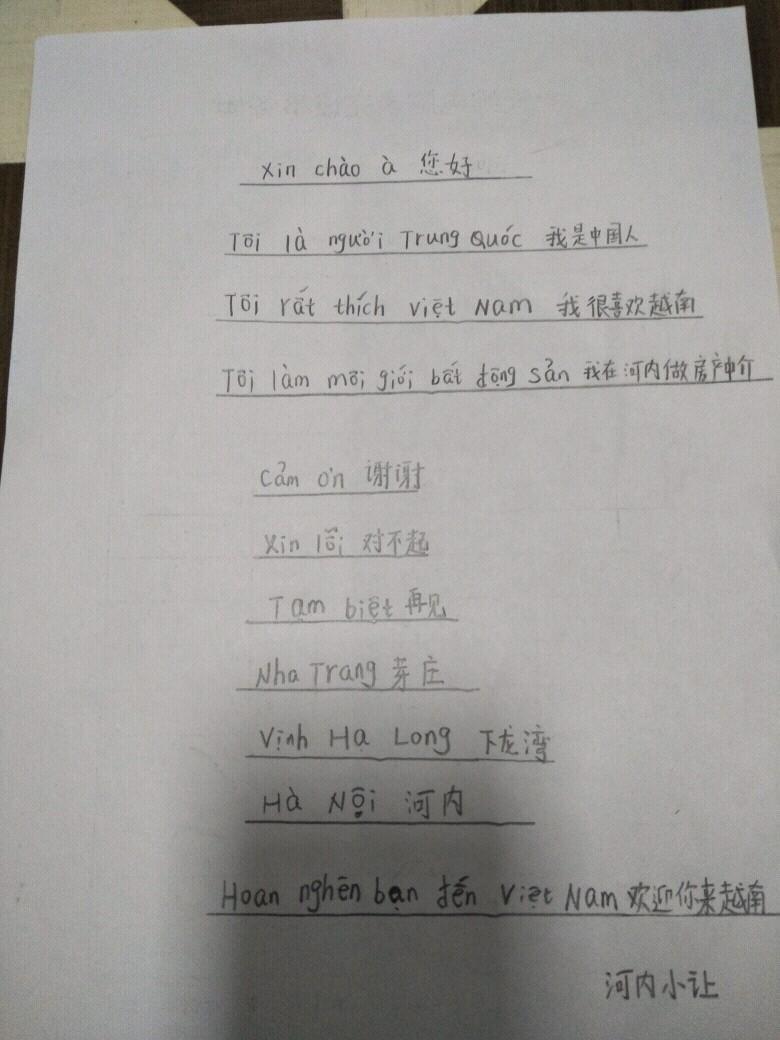 Xin chào à 您好
Tôi là người Trung Quốc 我是中国人
Tôi rất thích Việt Nam 我很喜欢越南
Tôi làm môi giới bất động sản 我在河内做房产中介
Cảm ơn 谢谢
Xin lỗi 对不起
Tạm biệt 再见
Nha Trang 芽庄
Vịnh Hạ Long 下龙湾
Hà Nội 河内
Hoan nghên bạn đến Việt Nam 欢迎你来越南
河内小让